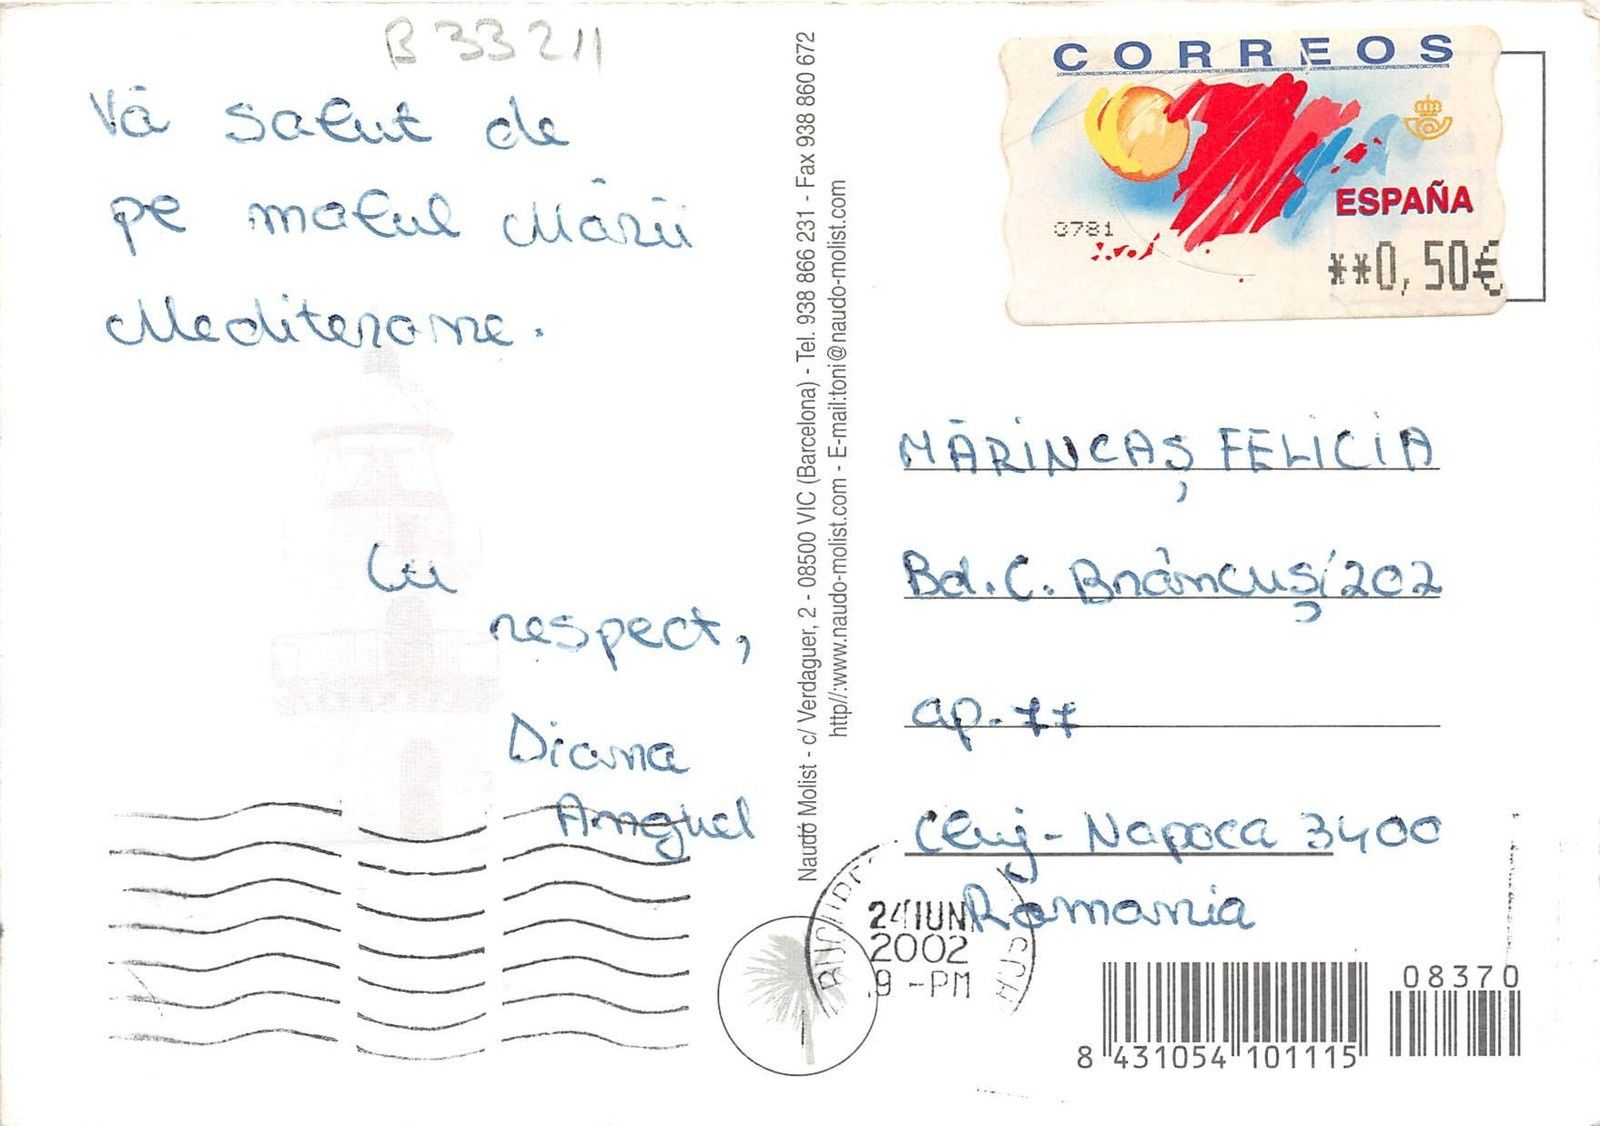 B 33211
Vă salut de
pe malul Mării
Mediterane.
Cu
respect,
Diana
Anghel
Naudó Molist - c/ Verdaguer, 2 - 08500 VIC (Barcelona) - Tel. 938 866 231 - Fax 938 860 672
http//:www.naudo-molist.com - E-mail:toni@naudo-molist.com
CORREOS
ESPAÑA
0781
**0,50€
MĂRINCAȘ FELICIA
Bd. C. Brâncuși 202
ap. 77
Cluj-Napoca 3400
Romania
24 IUN
2002
9 -PM
08370
8 431054 101115